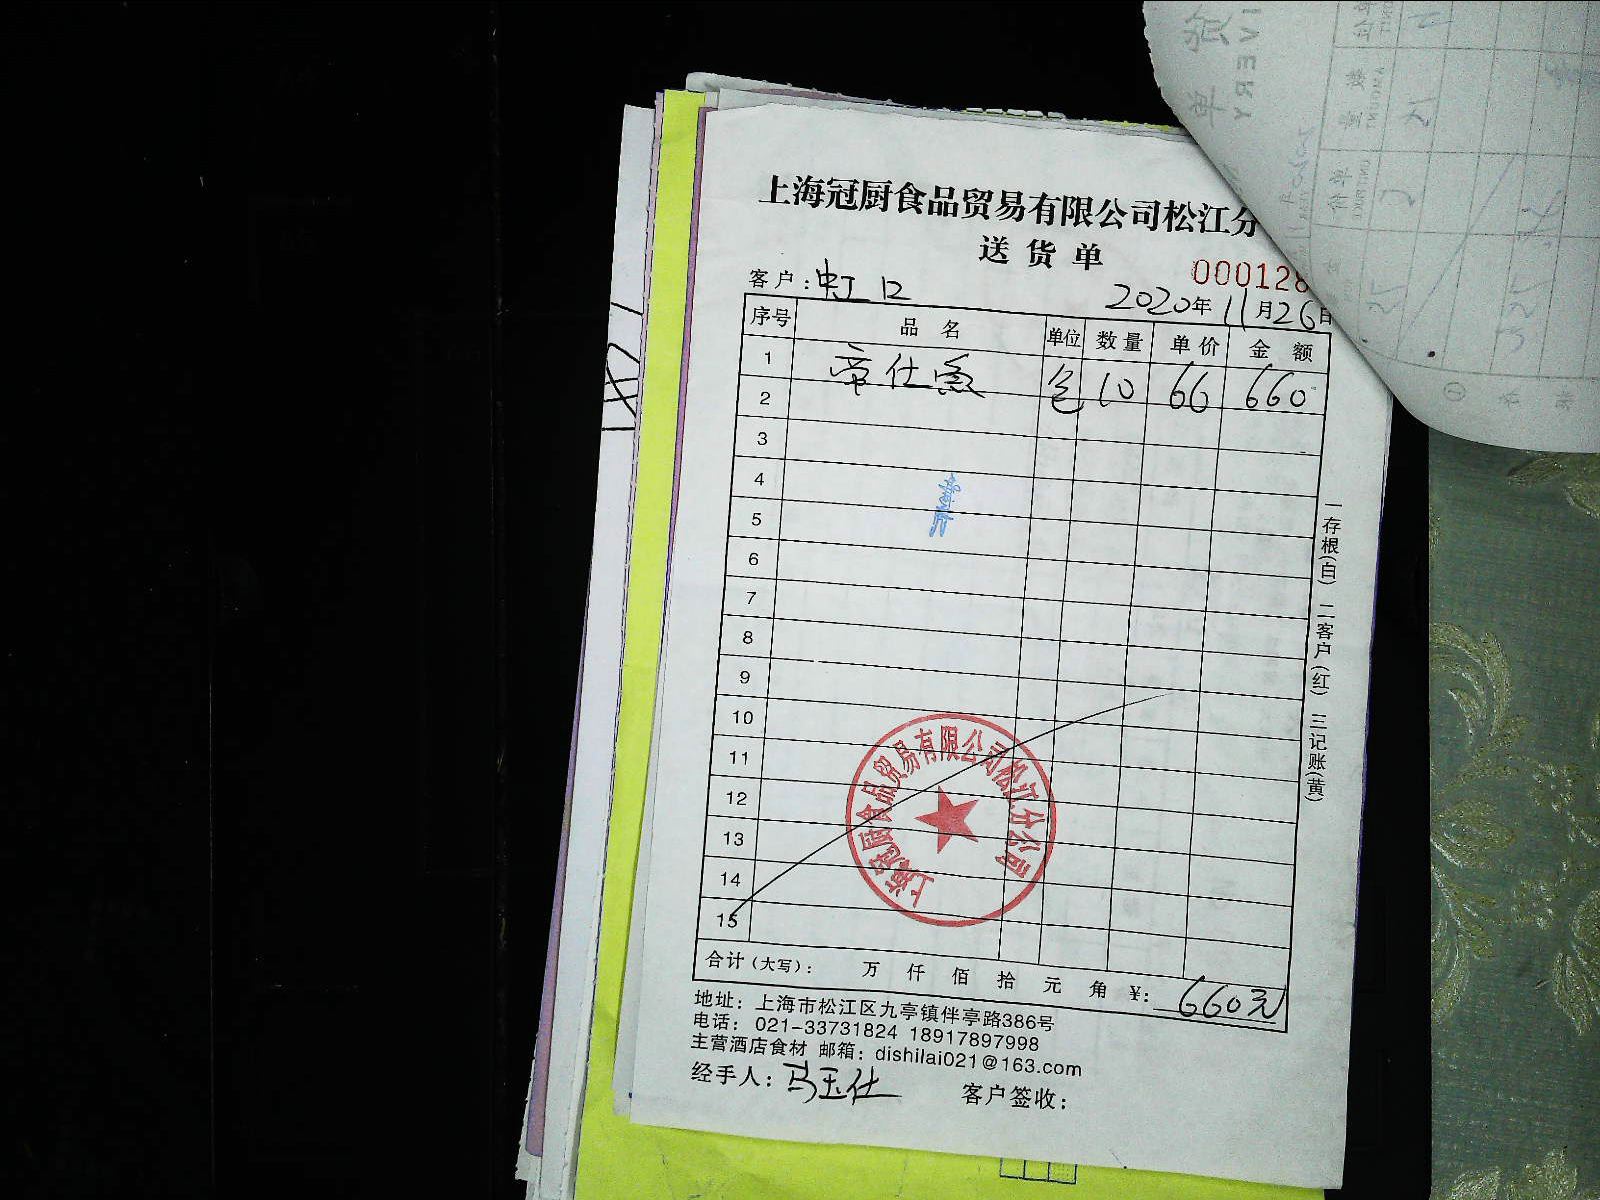 上海冠厨食品贸易有限公司松江分
送货单
000128
客户：虹口 2020年11月26日
序号 品名 单位 数量 单价 金额
1 帝仕鱼 包 10 66 660
2
3
4
5
6
7
8
9
10
11
12
13
14
15
合计（大写）： 万 仟 佰 拾 元 角 ¥：660元
地址：上海市松江区九亭镇伴亭路386号
电话：021-33731824 18917897998
主营酒店食材 邮箱：dishilai021@163.com
经手人：马玉仕 客户签收：
一存根(白) 二客户(红) 三记账(黄)
上海冠厨食品贸易有限公司松江分公司